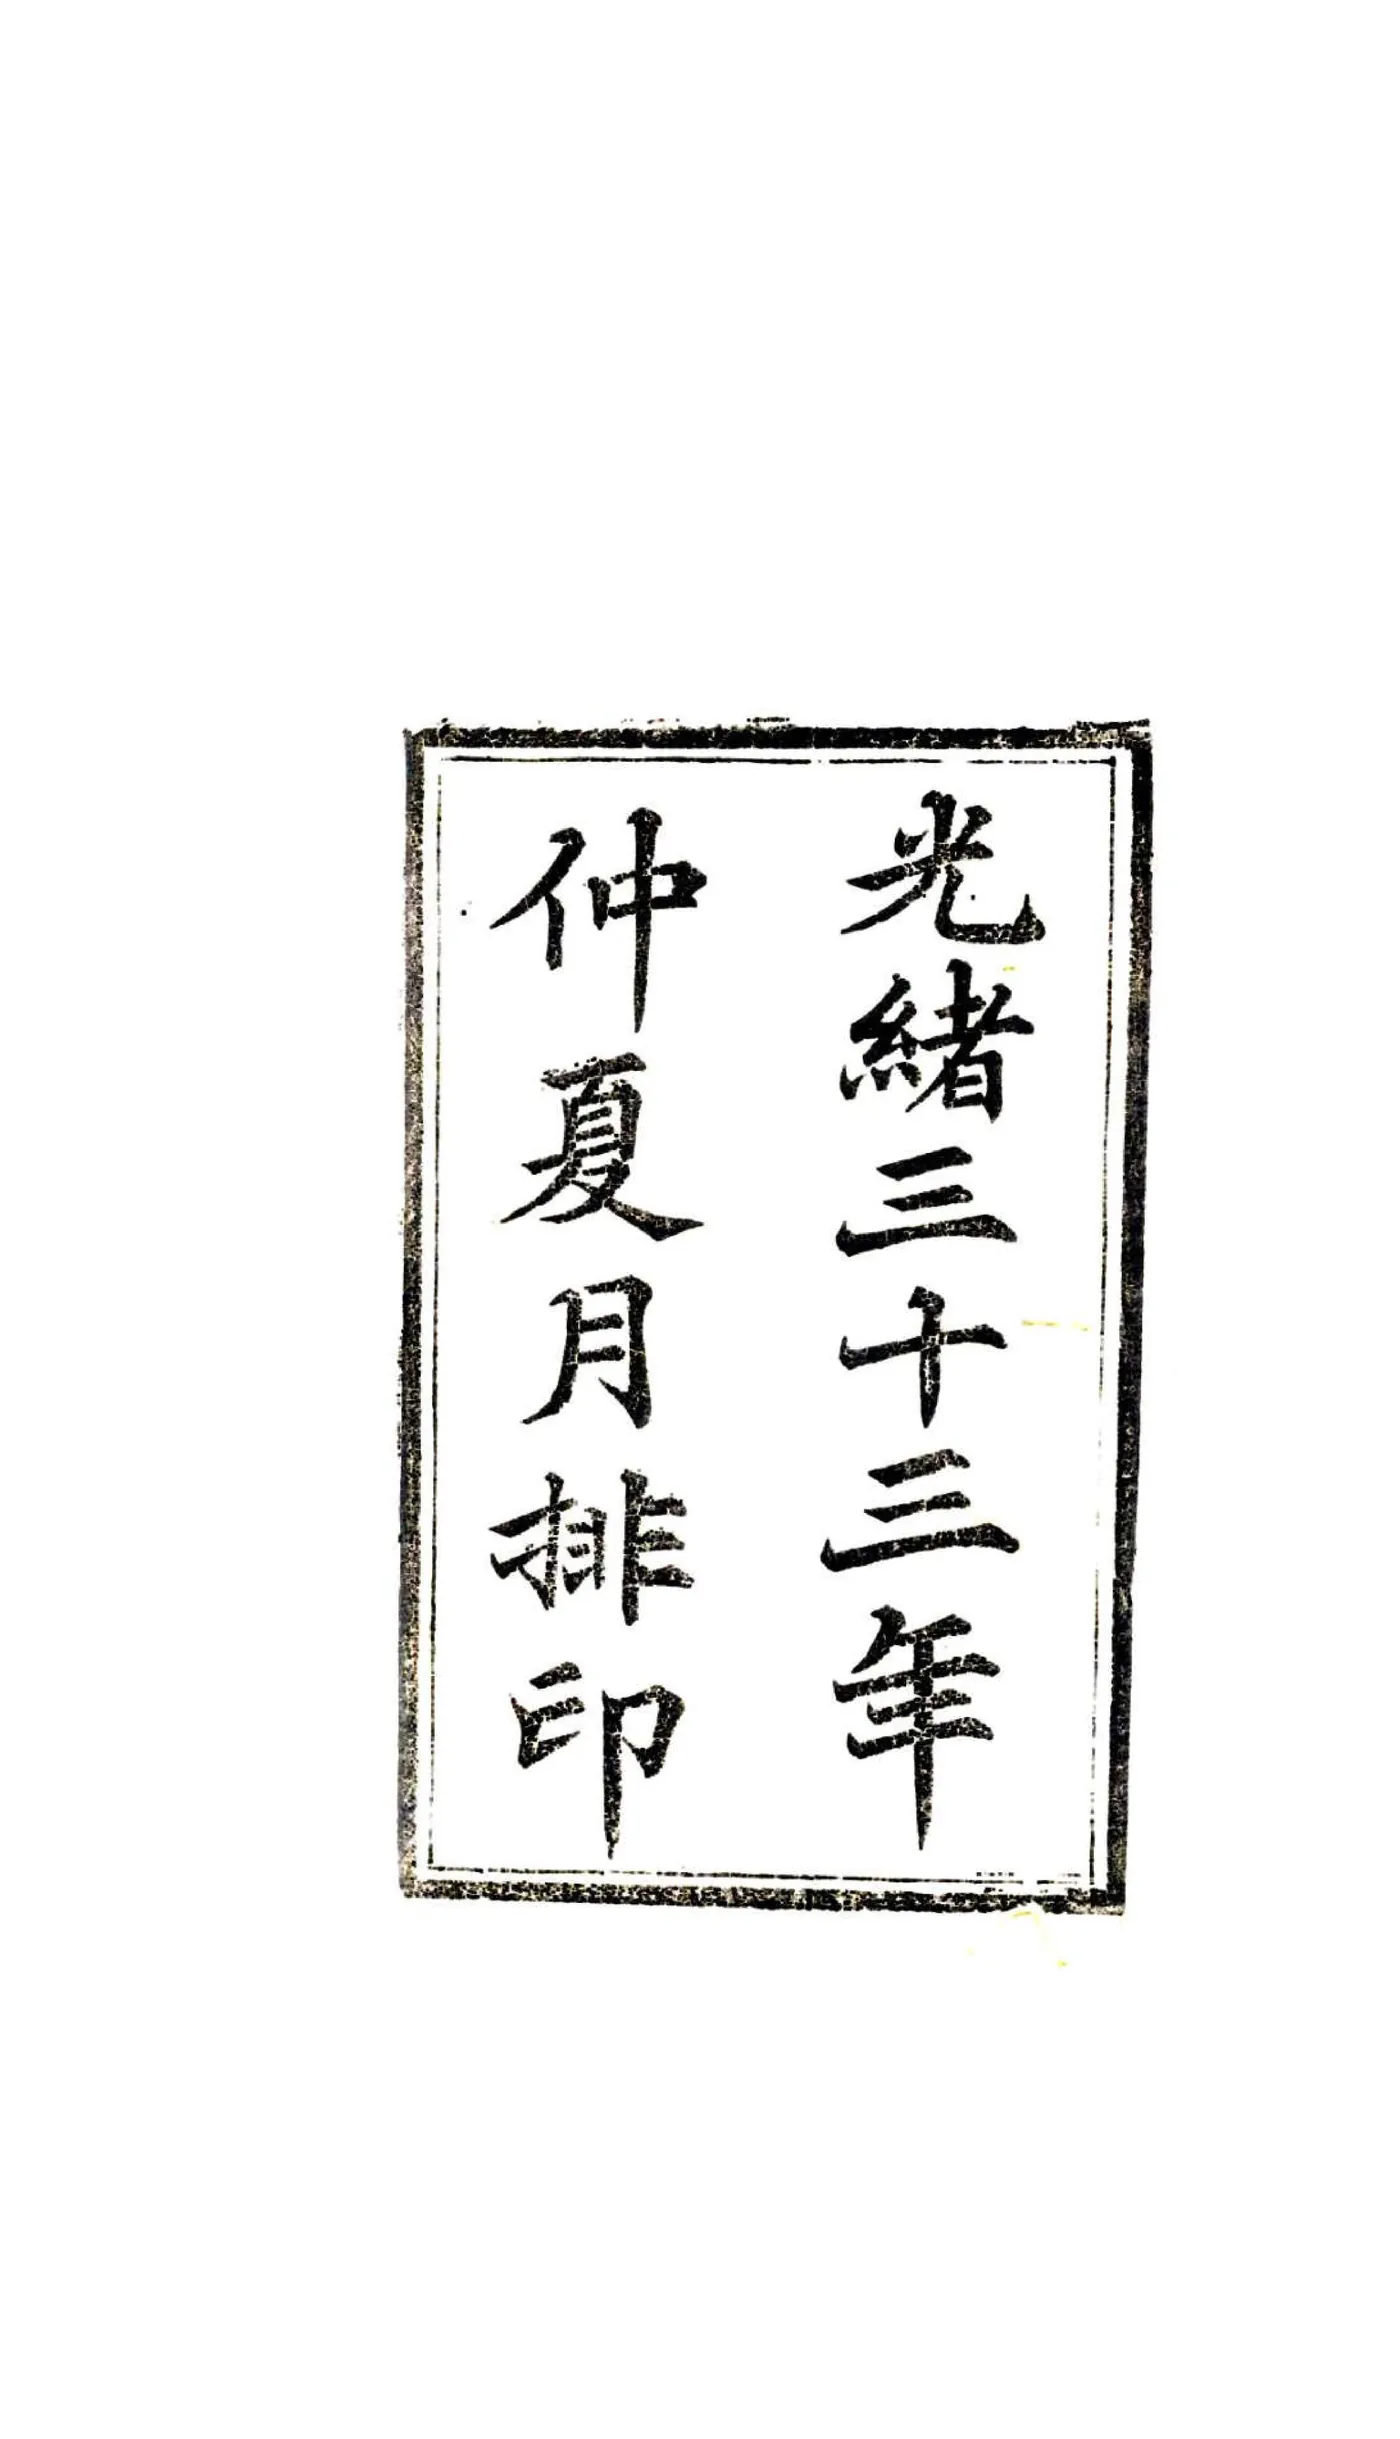 光緒三十三年
仲夏月排印